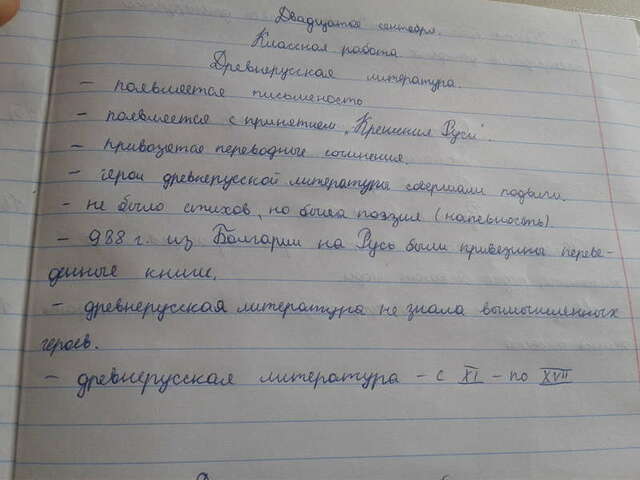 Двадцатое сентября.
Классная работа.
Древнерусская литература.
- появляется письменость
- появляется с принятием „Крещения Руси".
- привозятся переводные сочинения.
- герои древнерусской литературы совершали подвиги.
- не было стихов, но была поэзия (напевность).
- 988 г. из Болгарии на Русь были привезины переве-
денные книги.
- древнерусская литература не знала вымышленных
героев.
- древнерусская литература - с XI - по XVII